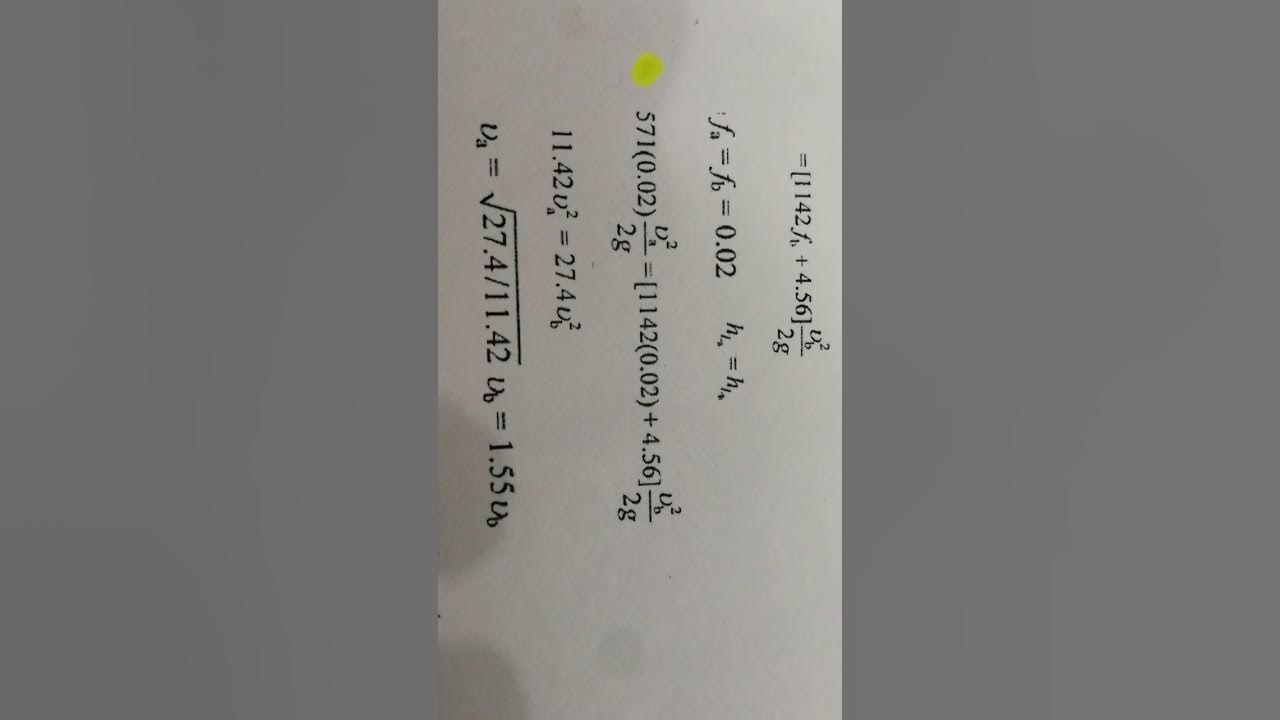 = [1142 f_b + 4.56] υ_b²/2g
: f_a = f_b = 0.02 h_L = h_L
571(0.02) υ_a²/2g = [1142(0.02) + 4.56] υ_b²/2g
11.42 υ_a² = 27.4 υ_b²
υ_a = √27.4/11.42 υ_b = 1.55 υ_b